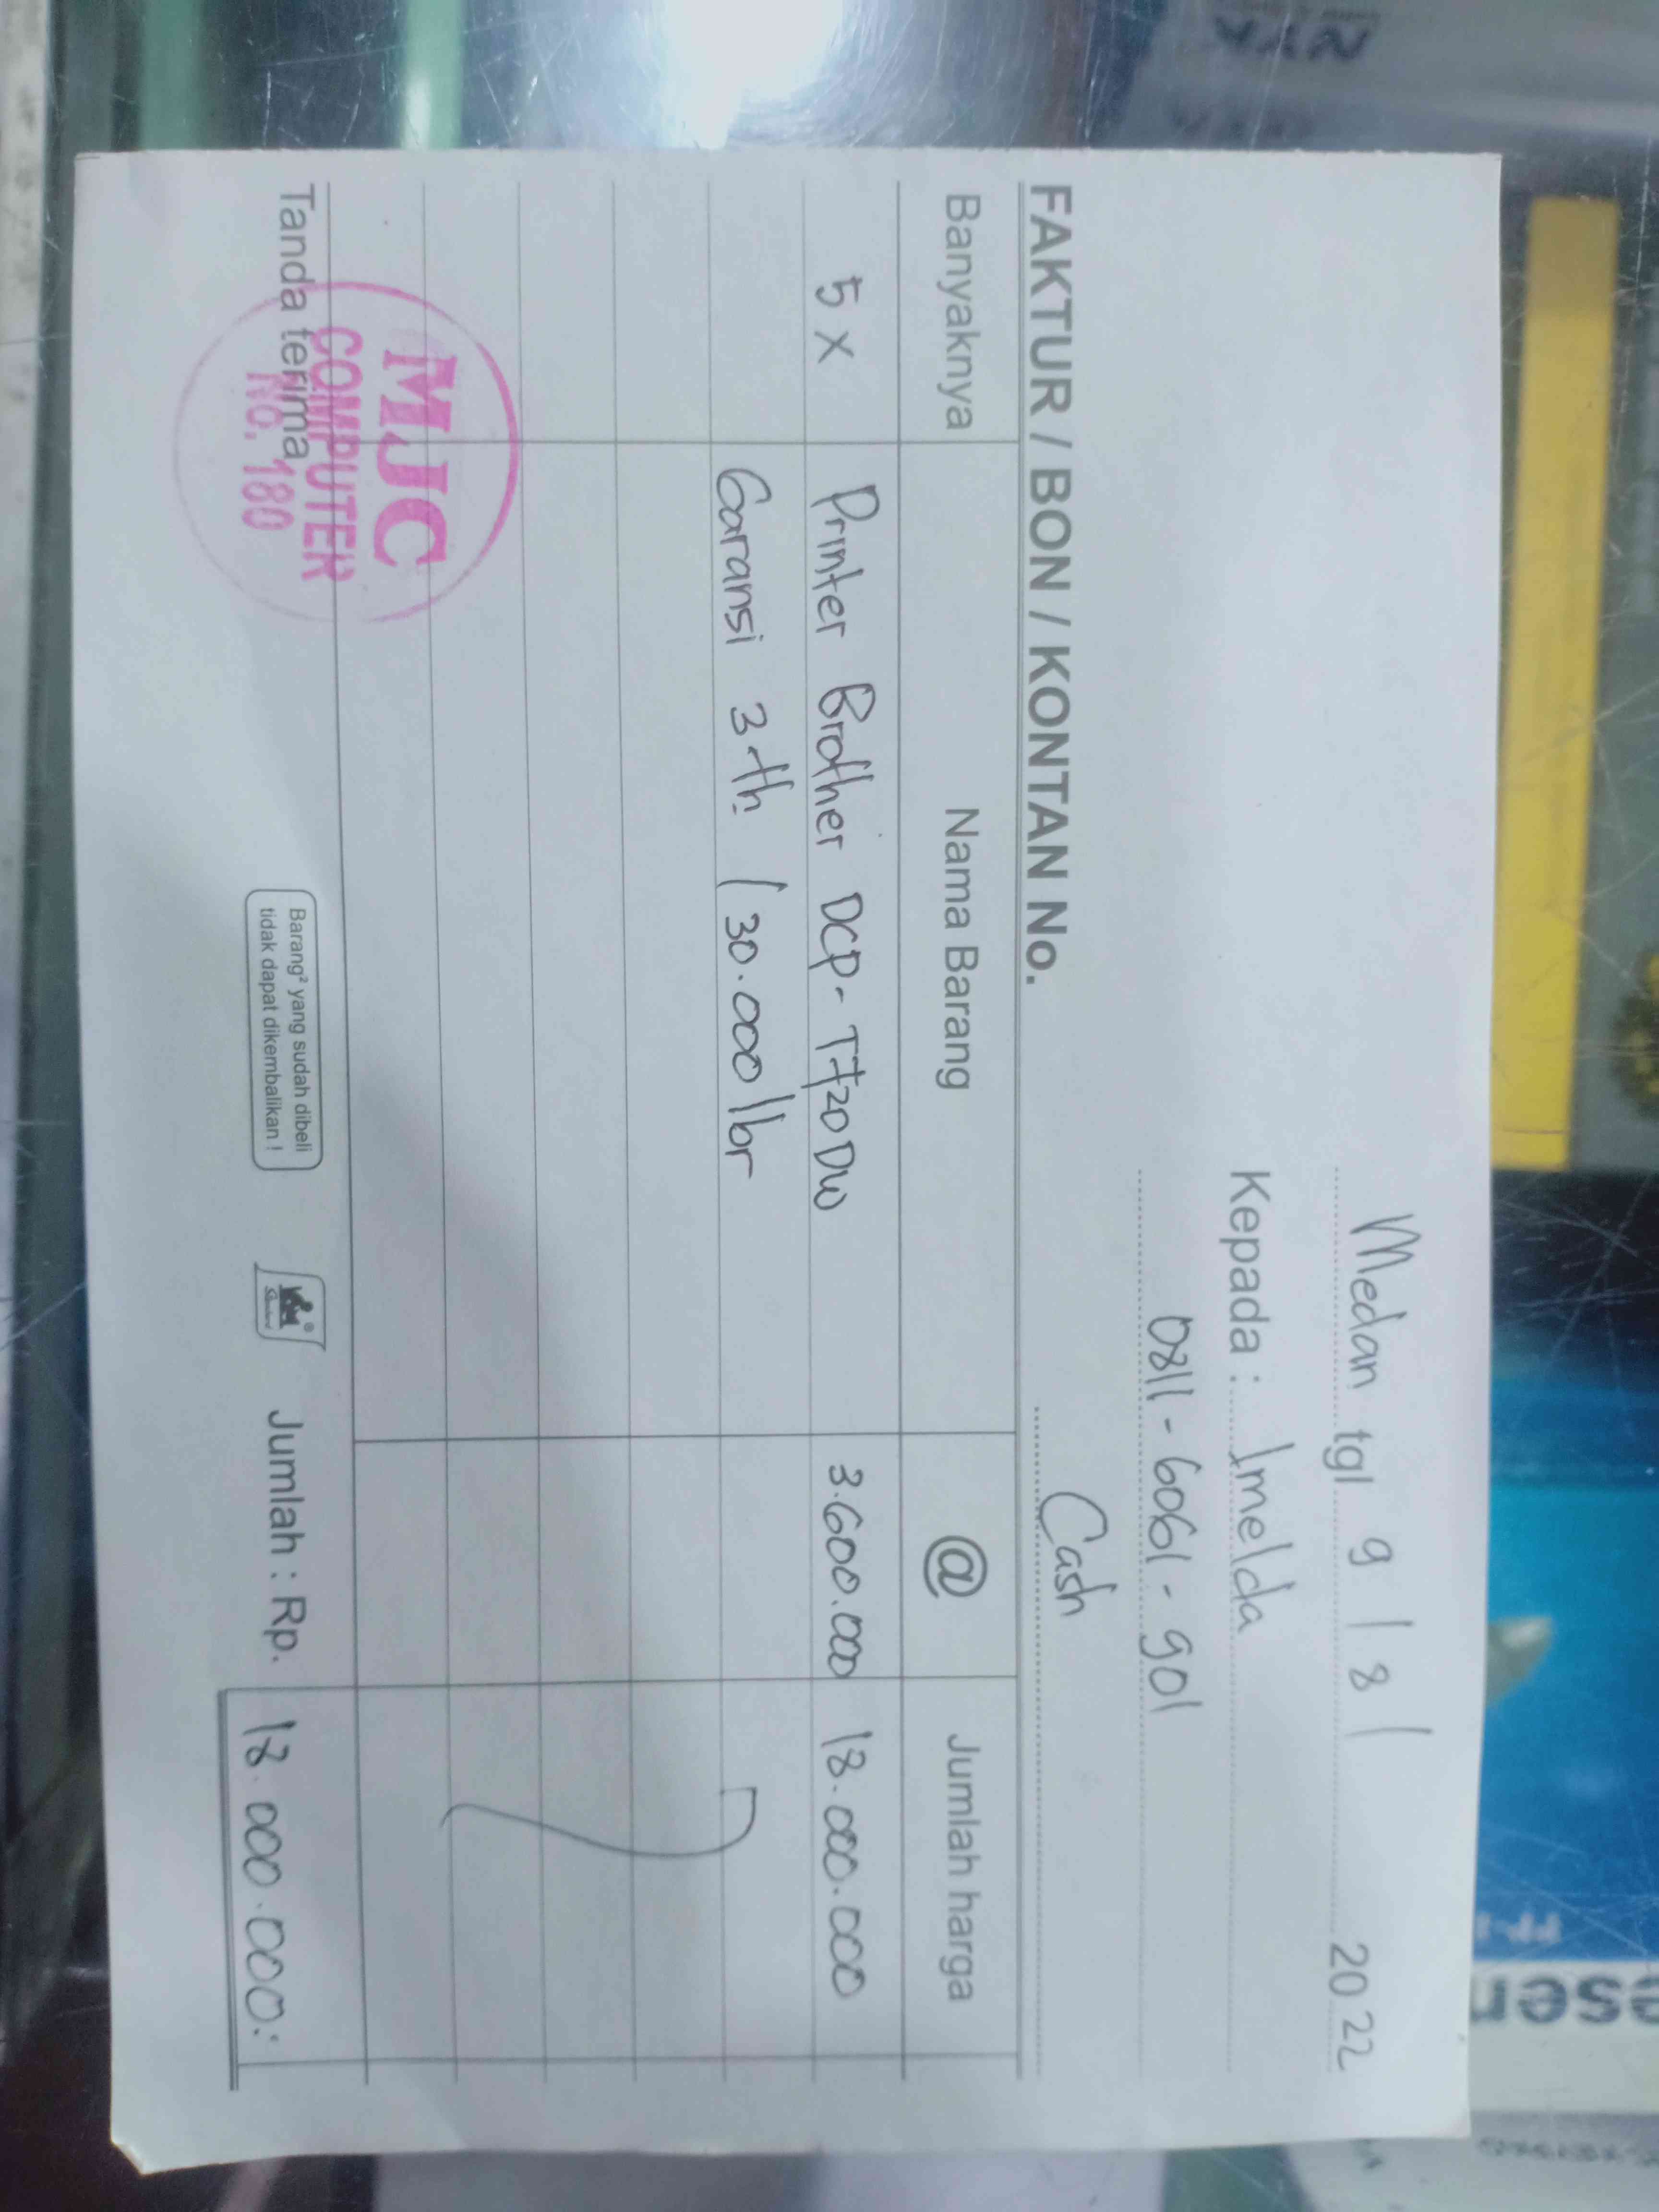 Medan tgl 9 / 8 / 2022
Kepada : Imelda
0811 - 6061 - 901
FAKTUR / BON / KONTAN No. Cash
Banyaknya Nama Barang @ Jumlah harga
5 x Printer Brother DCP- T720DW 3.600.000 18.000.000
Garansi 3 th / 30.000 lbr
Tanda terima
MJC
COMPUTER
NO. 180
Barang² yang sudah dibeli
tidak dapat dikembalikan !
Jumlah : Rp. 18.000.000.-